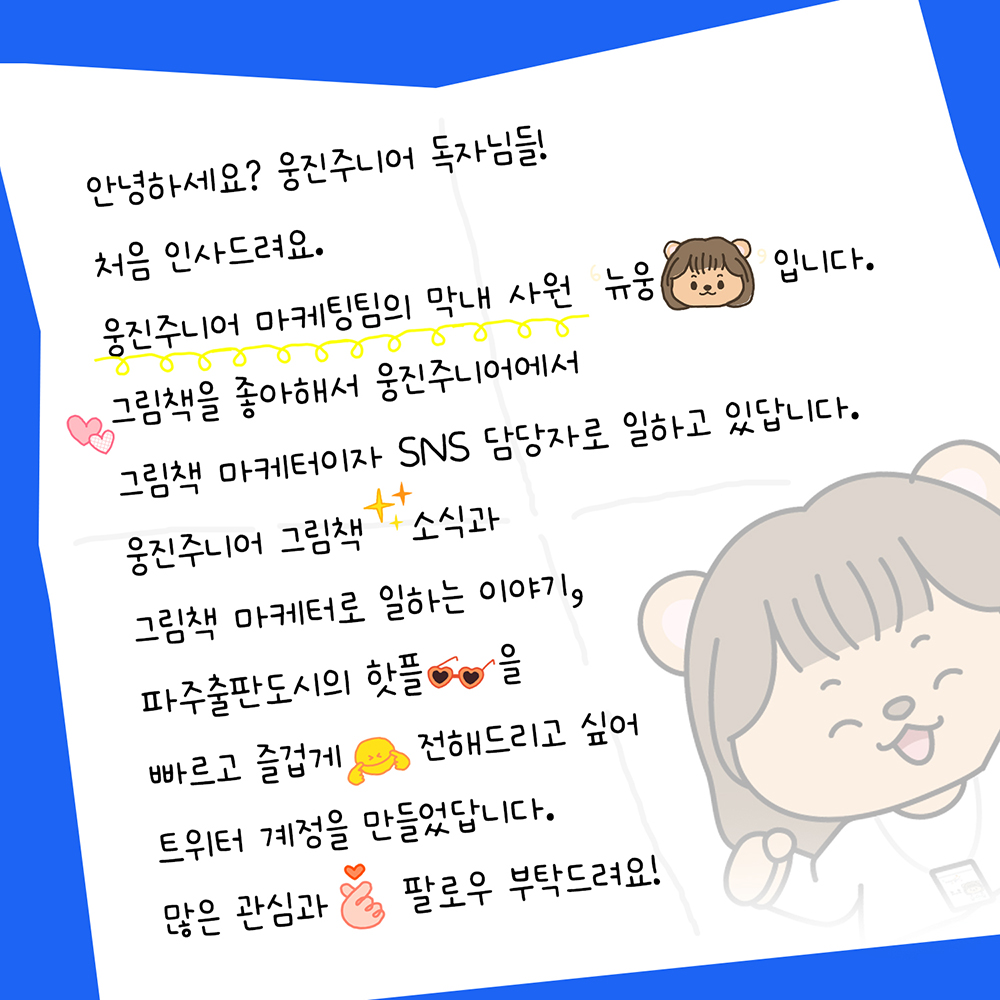 안녕하세요? 웅진주니어 독자님들!
처음 인사드려요.
웅진주니어 마케팅팀의 막내 사원 ‘뉴웅’ 입니다.
그림책을 좋아해서 웅진주니어에서
그림책 마케터이자 SNS 담당자로 일하고 있답니다.
웅진주니어 그림책 소식과
그림책 마케터로 일하는 이야기,
파주출판도시의 핫플을
빠르고 즐겁게 전해드리고 싶어
트위터 계정을 만들었답니다.
많은 관심과 팔로우 부탁드려요!